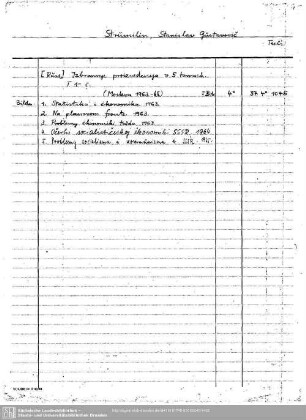 Strumilin, Stanislav Gustavovič
[Russ.] Izbrannye proizvedenija v 5 tomach.
(Moskva 1963-65) 4° 37 4°
Bde
1. Statistika i ėkonomika 1963
2. Na planovom fronte 1963
3. Problemy ėkonomiki truda 1963
4. Očerki socialističeskoj ėkonomiki SSSR 1964
5. Problemy socializma i kommunizma v SSSR 1965
Sächsische Landesbibliothek -
Staats- und Universitätsbibliothek Dresden